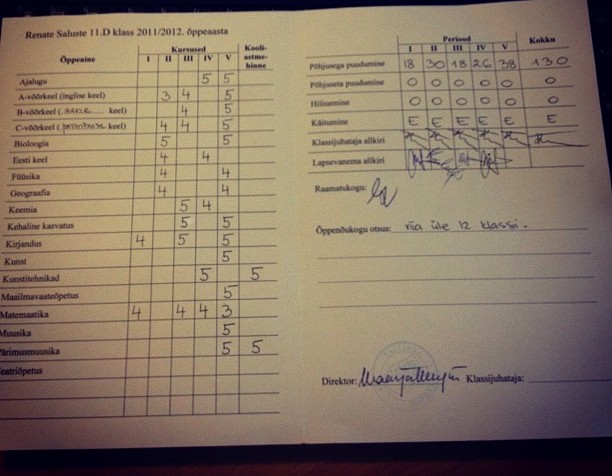 Renate Saluste 11.D klass 2011/2012. õppeaasta
Õppeaine Kursused Kooli-
I II III IV V astme-
hinne
Ajalugu 5 5
A-võõrkeel (inglise keel) 3 4 5
B-võõrkeel ( keel) 4 5
C-võõrkeel ( keel) 4 4 5
Bioloogia 5 5
Eesti keel 4 4
Füüsika 4 4
Geograafia 4 4
Keemia 5 4
Kehaline kasvatus 5 5
Kirjandus 4 5 5
Kunst 5
Kunstitehnikad 5 5
Maailmavaateõpetus 5
Matemaatika 4 4 4 3
Muusika 5
Pärimusmuusika 5 5
Teatriõpetus
Periood Kokku
I II III IV V
Põhjusega puudumine 18 30 18 26 38 130
Põhjuseta puudumine 0 0 0 0 0 0
Hilinemine 0 0 0 0 0 0
Käitumine E E E E E E
Klassijuhataja allkiri
Lapsevanema allkiri
Raamatukogu:
Õppenõukogu otsus: viia üle 12 klassi.
Direktor: Klassijuhataja: